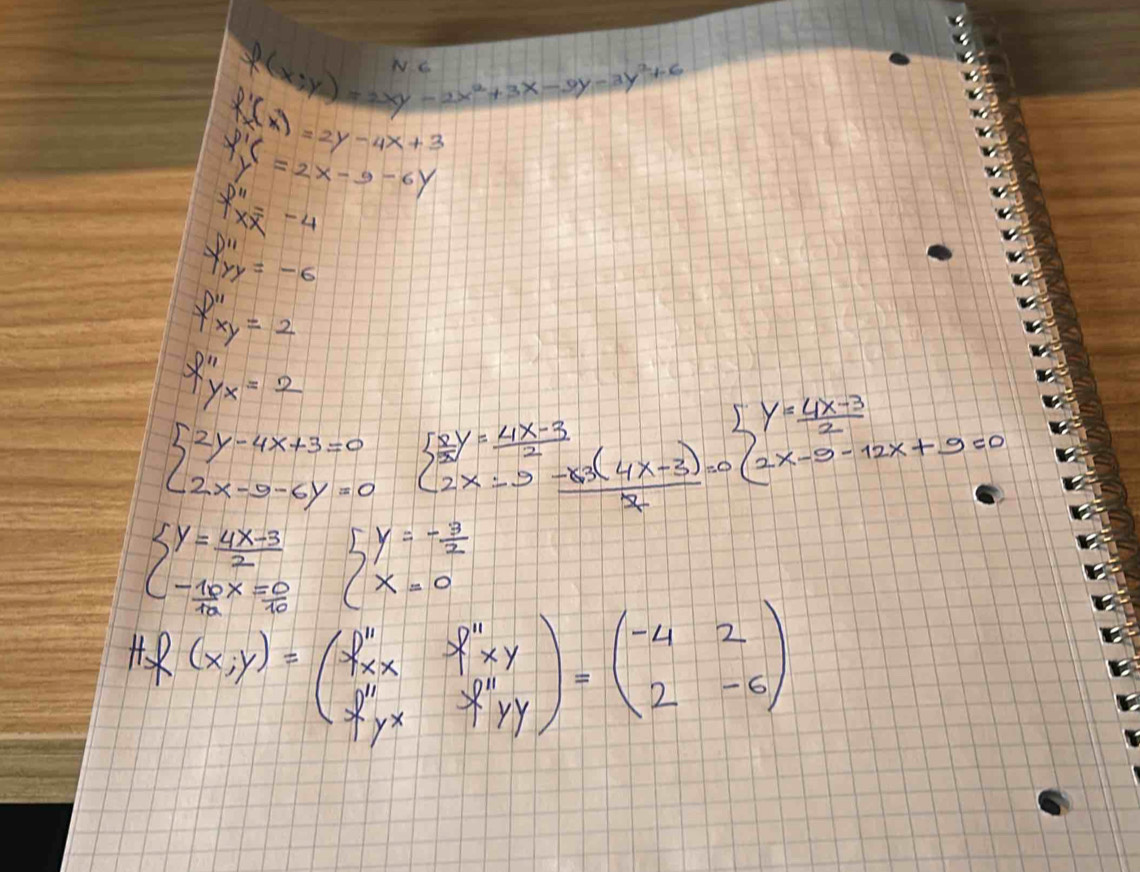 N.6
f(x;y) = 2xy - 2x² + 3x - 9y - 3y² + 6
f'x(x) = 2y - 4x + 3
f'y( = 2x - 9 - 6y
f''xx = -4
f''yy = -6
f''xy = 2
f''yx = 2
{2y - 4x + 3 = 0 {2/2 y = (4x-3)/2 {y = (4x-3)/2
{2x - 9 - 6y = 0 {2x - 9 - 63(4x-3)/2 = 0 {2x - 9 - 12x + 9 = 0
{y = (4x-3)/2 {y = -3/2
{-10x/10 = 0/10 {x = 0
Hf (x;y) = (f''xx f''xy) = (-4 2)
(f''yx f''yy) (2 -6)